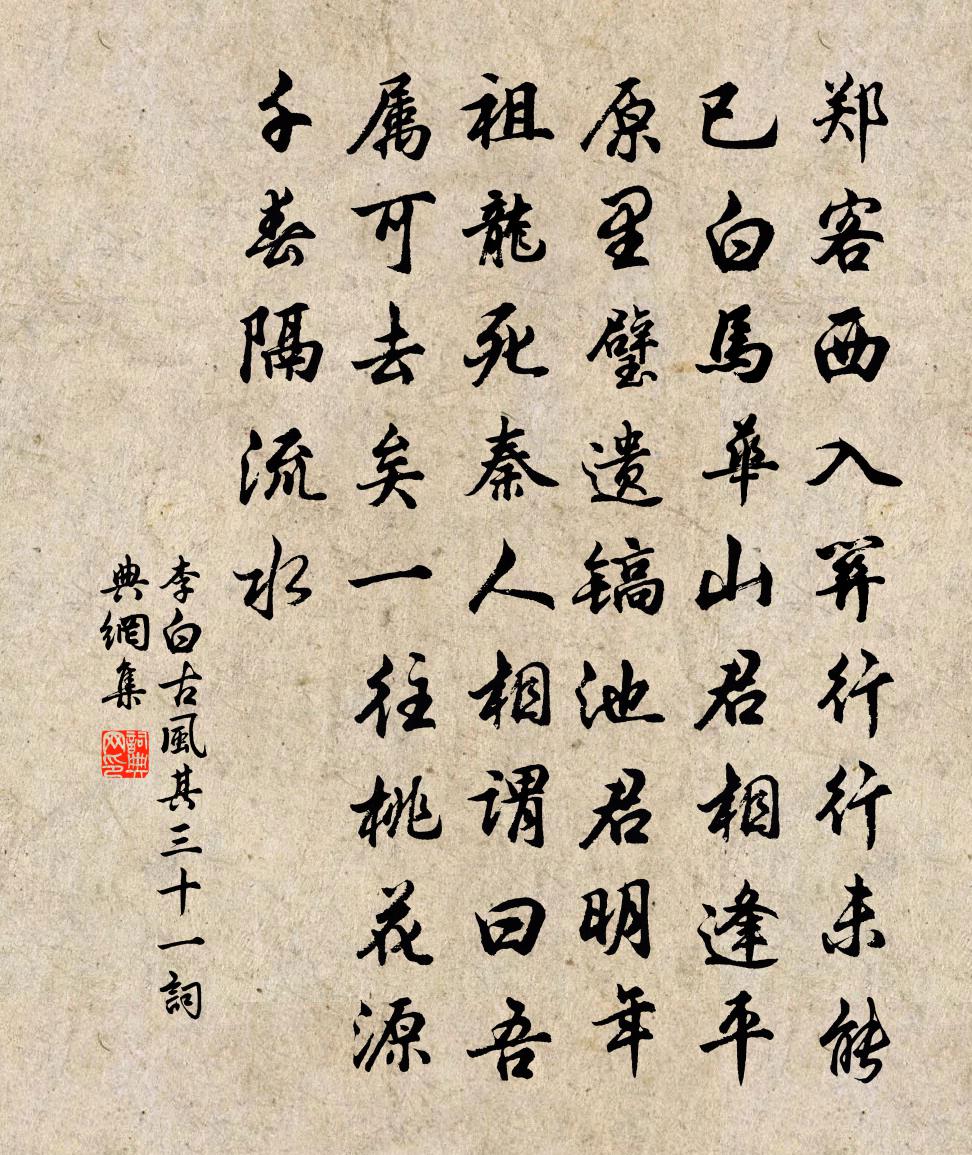 郑客西入関行行未能
已白馬華山君相逢平
原里璧遗镐池君明年
祖龍死秦人相謂曰吾
属可去矣一往桃花源
千春隔流水
李白古風其三十一詞
典網集
詞典
网印